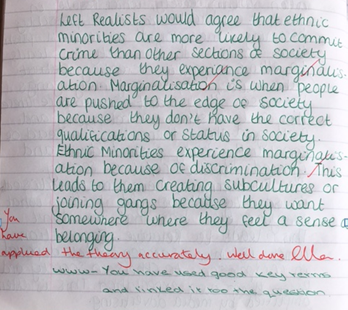 Left Realists would agree that ethnic
minorities are more likely to commit
crime than other sections of society
because they experiance marginalis-
ation. Marginalisation is when people
are pushed to the edge of society
because they don't have the correct
qualifications or status in society.
Ethnic Minorities experience marginalis-
ation because of discrimination. This
leads to them creating subcultures or
joining gangs because they want
somewhere where they feel a sense of
belonging.
You
have
applied the theory accurately. Well done Ella.
www- You have used good key terms
and linked it too the question